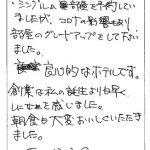 シングルの部屋を予約してい
ましたが、コロナの影響もあり
部屋のグレードアップをして下さい
ました。
良心的なホテルです。
創業は私の誕生よりも早く
しにせを感じました。
朝食も大変おいしくいただき
ました。